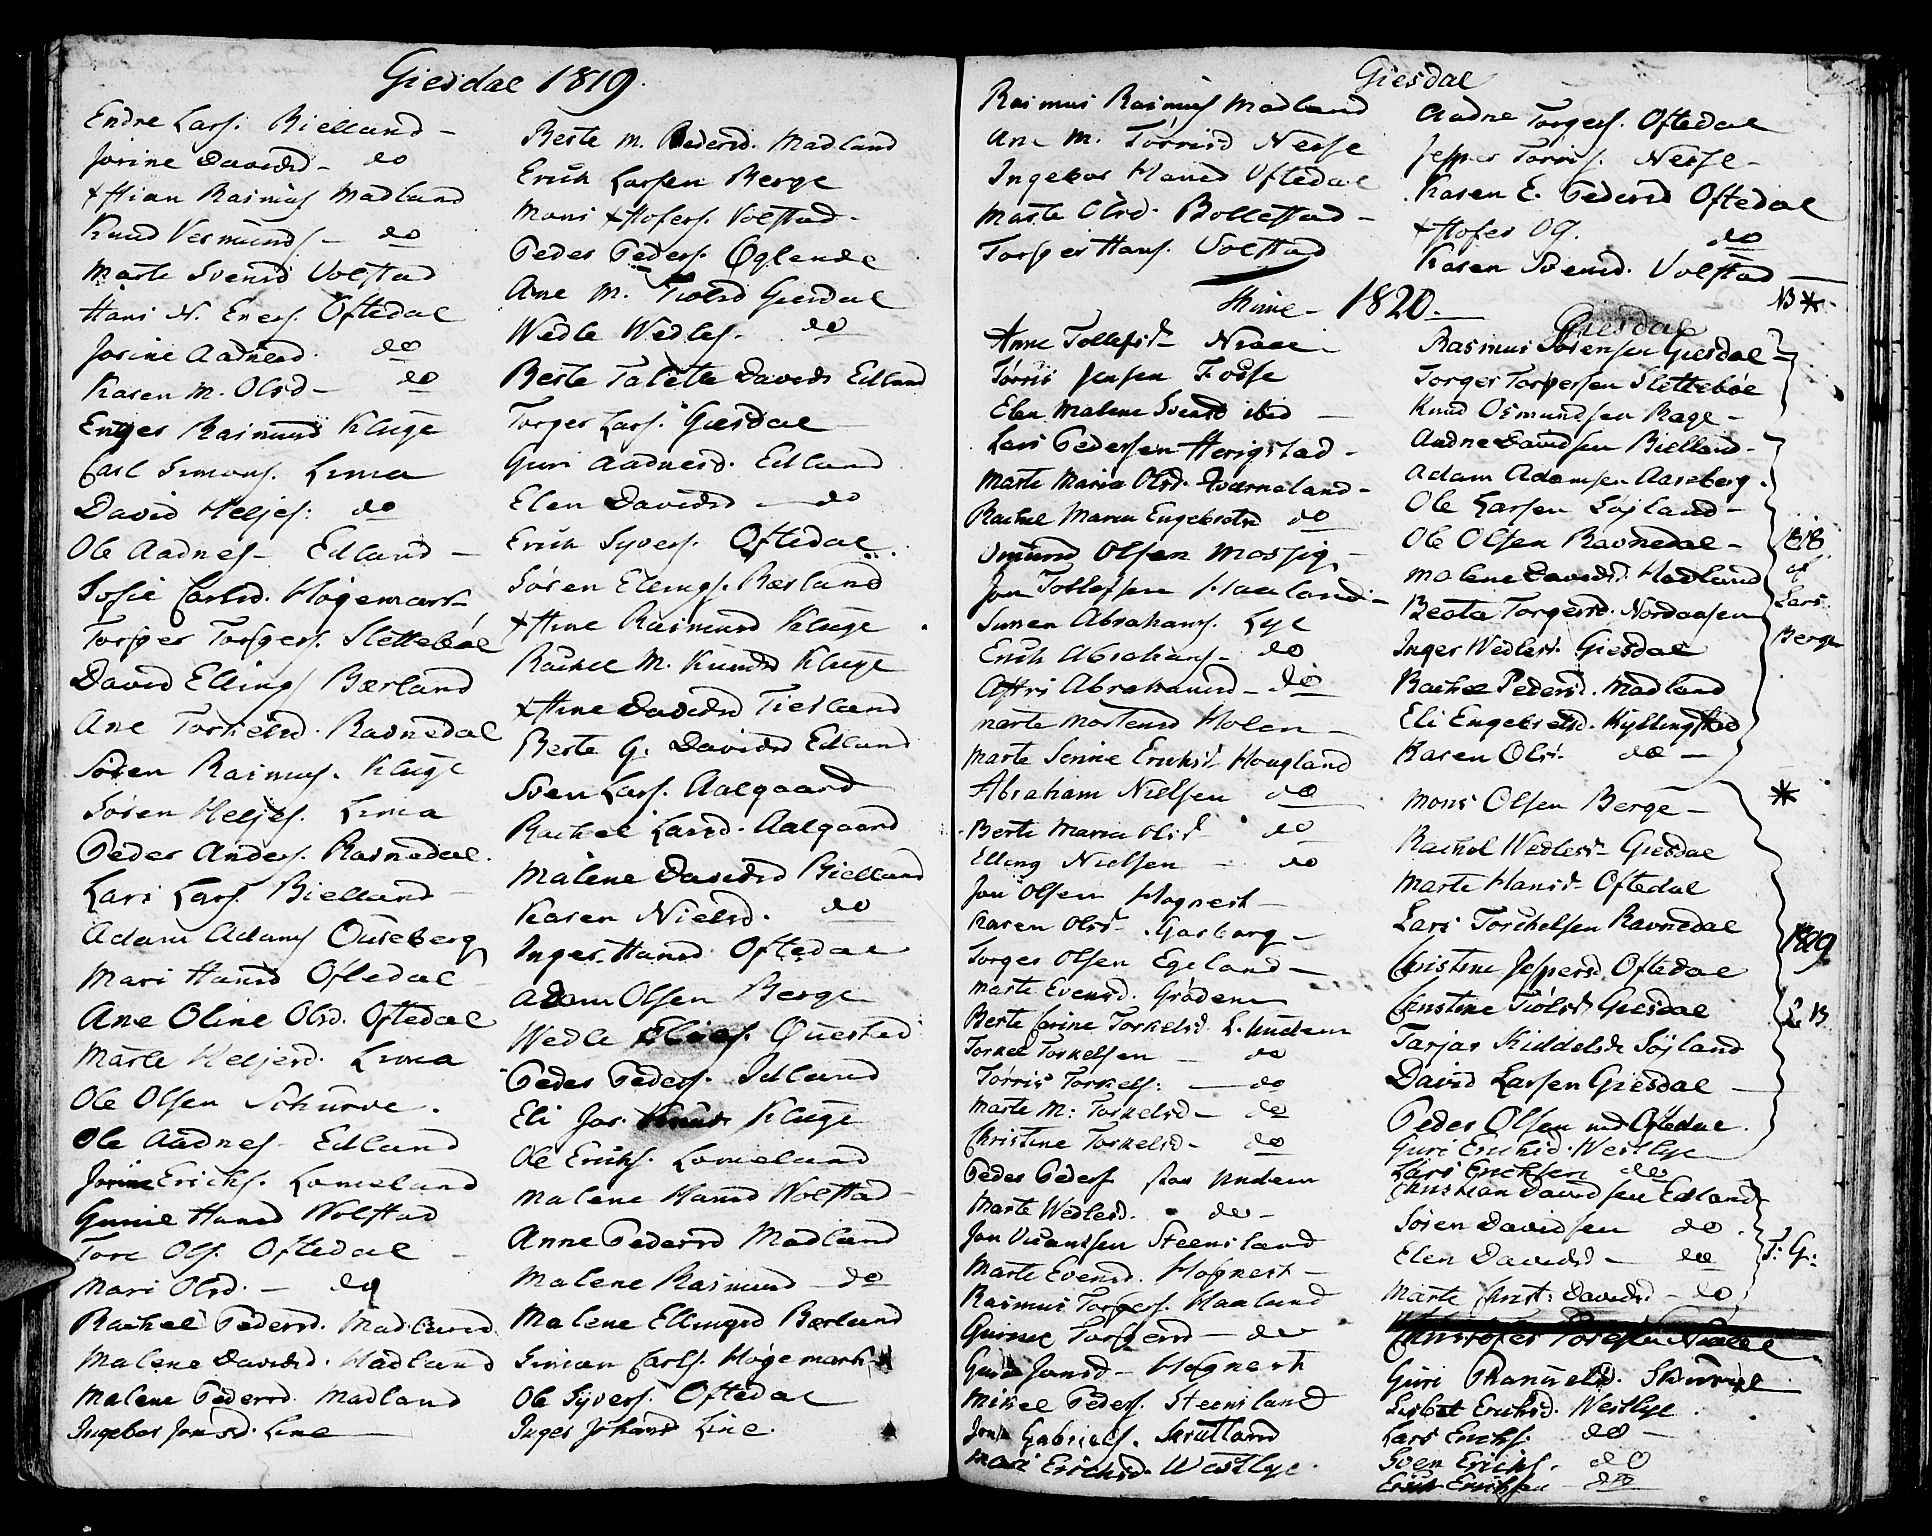 Giesdal 1819.
Endre Lars. Bielland -
Josine Davidsd - do
Knud Vermunds. - do
Marte Svensd Volstad
Hans N. Eners. Oftedal
Josine Aadnesd. do
Karen M. Olsd - do
Rasmusd Kluge
Carl Simons. Lima
David Heljes. do
Ole Aadnes - Edland -
Sofie Carlsd. Høgemark
Torger Torgers. Slettebøe
David Ellings Bærland
Ane Torkelsd. Ravnedal
Søren Rasmus. Kluge
Søren Heljes. Lima
Peder Anders. Ravnedal.
Lars Lars. Bielland -
Adam Adams Ouseberg
Mari Hansd Oftedal
Ane Oline Olsd. Oftedal
Marte Heljesd. Lima
Ole Olsen Schurve.
Ole Aadnes - Edland
Erichs. Lomeland
Gunil Hansd Wolstad
Tore Ols. Oftedal -
Mari Olsd. - do
Rachel Pedersd. Madland
Malene Davidsd. Madland
Malene Pedersd. Madland
Ingebor Jonsd. Line
Berte M. Pedersd. Madland
Erich Larsen Berge
Mons Volstad -
Peder Peders. Øglende
Ane M. Giesdal
Wedle Wedles. do
Berte Talete Davids Edland
Torger Lars. Giesdal
Guri Aadnesd. Edland
Elen Davidsd - do
Erich Syvers. Oftedal
Søren Ellings. Bærland
Stine Rasmusd Kluge
Rachel M. Knudsd Kluge
Stine Davidsd
Berte G. Davidsd Edland
Sven Lars. Aalgaard
Rachel Larsd. Aalgaard
Malene Davidsd Bielland
Karen Nielsd. do
Inger Hansd Oftedal
Adam Olsen Berge
Wedle Elies. Ouestad
Peder Peders. Idland
Eli Kluge
Ole Erichs. Lomeland
Malene Hansd Wolstad -
Anne Pedersd Madland
Malene Rasmusd - do
Malene Ellingsd Bærland
Simon Carls. Høgemark
Ole Syvers. Oftedal
Inger Johansd Line.
Giesdal
Rasmus Rasmus Madland
Ane M. Torrisd Nesse
Ingebor Hansd Oftedal
Marte Olsd. Bollestad -
Torger Hans. Volstad
Aadne Torgers. Oftedal
Jesper Torris. Nesse -
Karen E. Pedersd Oftedal
do
Karen Svensd. Volstad
Thime - 1820.
NB *
Anne Tollefsd
Tørris Jensen Fosse
Elen Malene Svensd ibid -
Lars Pedersen Herigstad -
Marte Maria Olsd. Qværneland -
Rachel Maria Engebretsd do
Osmund Olsen Mossig -
Jon Tollefsen Haaland -
Simen Abrahams. Lye
Erich Abrahams - do
Abrahamsd - do
Marte Mortensd Holen -
Marte Serine Erichsd Hougland
Abraham Nielsen do
Berte Maria Olsd do
Elling Nielsen - do
Jon Olsen Hognest -
Karen Olsd. Garborg -
Torger Olsen Egeland -
Marte Evensd. Grødem
Berte Carine Torkelsd. L. Undem
Torkel Torkelsen - do
Tørris Torkels: - do
Marte M: Torkelsd - do
Christine Torkelsd - do
Peder Peders stor Undem
Marte Wedlesd. - do -
Jon Steensland
Marte Evensd. Hognest -
Rasmus Torgers. Haaland
Gunnil Torgersd - do
Jonsd - Hognest
Mikel Peders. Steensland
Jon Gabriels. Scrutland
Mari Erichsd. Westlye.
Giesdal
Rasmus Sørensen Giesdal -
Torger Torgersen Slettebøe
Knud Osmundsen Rage -
Aadne Davidsen Bielland -
Adam Adamsen Aaseberg.
Ole Larsen Søyland -
Ole Olsen Ravnedal -
Malene Davidsd. Madland
Beata Torgersd. Nordaasen
Inger Wedlesd. Giesdal
Rachel Pedersd. Madland
Eli Engebretsd. Kyllingstad
Karen Olsd. do -
1818
af
Lars
Berge
Mons Olsen Berge -
*
Rachel Wedlesd - Giesdal
Marte Hansd - Oftedal
Lars Torchelsen Ravnedal
Christine Jespersd Oftedal
Christine Giesdal
Tarjar Kiddelsd. Søyland
David Larsen Giesdal -
Peder Olsen Oftedal.
1819
L. B.
Guri Erichsd. Westlye
Lars Erichsen do
Christian Davidsen Edland
Søren Davidsen do.
Elen Davidsd - do
Marte Christ: Davidsd - do
T: G:
Guri
Lisbet Erichsd. Westlye.
Lars Erichs. do -
Sven Erichs. do
Erich Erichsen - do